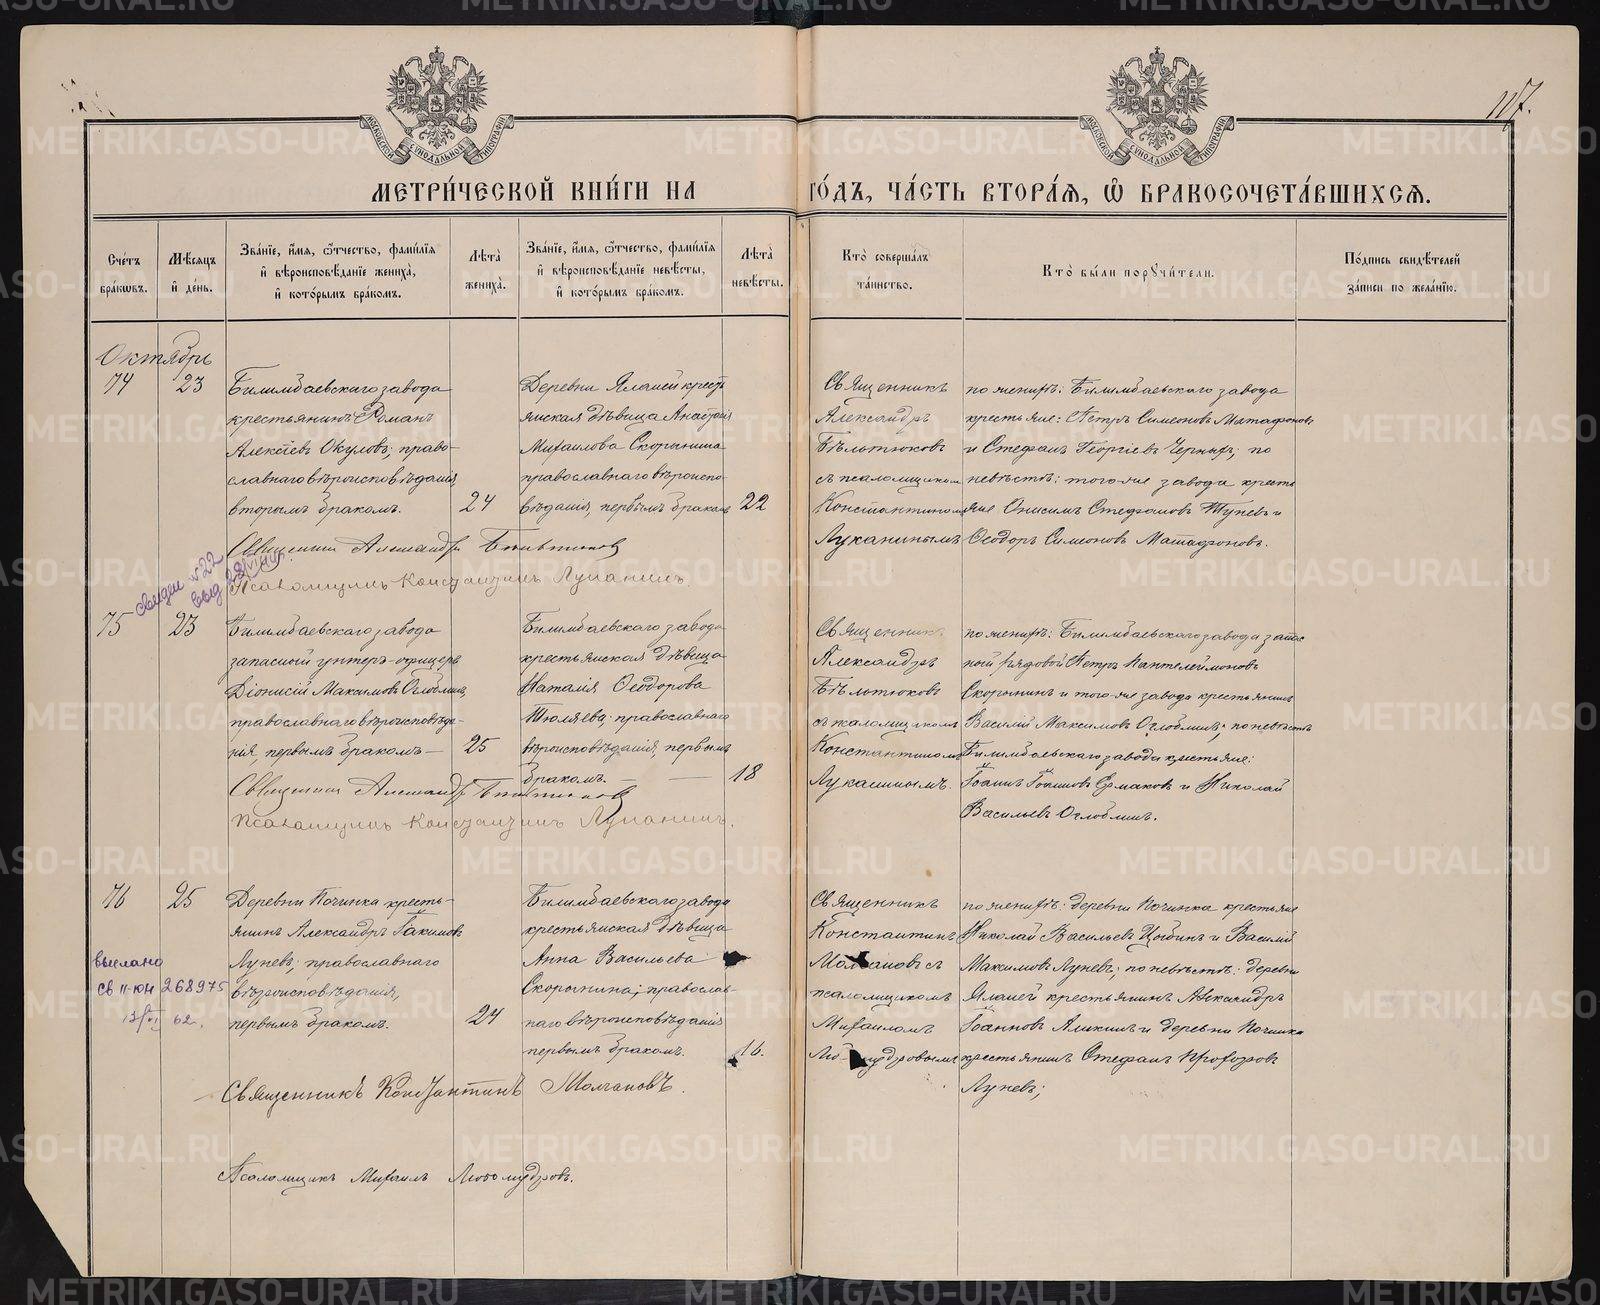 117.
МОСКОВСКОЙ СѴНОДАЛЬНОЙ ТИПОГРАФІИ
МОСКОВСКОЙ СѴНОДАЛЬНОЙ ТИПОГРАФІИ
МЕТРИ́ЧЕСКОЙ КНИ́ГИ НА ГО́ДЪ, ЧА́СТЬ ВТОРА́Я, Ѽ БРАКОСОЧЕТА́ВШИХСѦ.
Сче́тъ бра́кѡвъ.
Мѣ́сяцъ и҆ день.
Зва́нїе, и҆́мя, ѻ҆́тчество, фами́лїя
и҆ вѣроисповѣ́данїе жениха̀,
и҆ кото́рымъ бра́комъ.
Лѣ́та жениха̀.
Зва́нїе, и҆́мя, ѻ҆́тчество, фами́лїя
и҆ вѣроисповѣ́данїе невѣ́сты,
и҆ кото́рымъ бра́комъ.
Лѣ́та невѣ́сты.
Кто̀ соверша́лъ та́инство.
Кто̀ бы́ли порꙋчи́тели.
По́дпись свидѣ́телей
за́писи по жела́нїю.
Октябрь
74
23
Билимбаевскаго завода
крестьянинъ Романъ
Алексѣевъ Окуловъ; право-
славнаго вѣроисповѣданія,
вторымъ бракомъ.
24
Деревни Яланей кресть
янская дѣвица Анастасія
Михаилова Скорынина
православнаго вѣроиспо-
вѣданія, первымъ бракомъ
22
Священникъ
Александръ
Бѣльтюковъ
съ псаломщикомъ
Константиномъ
Луканинымъ
по женихѣ: Билимбаевскаго завода
крестьяне: Петръ Симеоновъ Матафоновъ
и Стефанъ Георгіевъ Черныхъ; по
невѣстѣ: того-же завода кресть
яне Онисимъ Стефановъ Тупевъ и
Ѳеодоръ Симеоновъ Матафоновъ.
Священникъ Александръ Бѣльтюковъ
Псаломщикъ Константинъ Луканинъ.
75
23
Билимбаевскаго завода
запасной унтеръ-офицеръ
Діонисій Максимовъ Оглоблинъ,
православнаго вѣроисповѣда-
нія, первымъ бракомъ—
25
Билимбаевскаго завода
крестьянская дѣвица
Наталія Ѳеодорова
Тюляева православнаго
вѣроисповѣданія, первымъ
бракомъ. —
18
Священникъ
Александръ
Бѣльтюковъ
съ псаломщикомъ
Константиномъ
Луканинымъ.
по женихѣ: Билимбаевскаго завода запас
ной рядовой Петръ Пантелеймоновъ
Скорынинъ и того-же завода крестьянинъ
Василій Максимовъ Оглоблинъ; по невѣстѣ
Билимбаевскаго завода крестьяне:
Іоаннъ Іоанновъ Ермаковъ и Николай
Васильевъ Оглоблинъ.
Священникъ Александръ Бѣльтюковъ
Псаломщикъ Константинъ Луканинъ.
76
25
выслано
св II-ЮН 268975
62.
Деревни Починка кресть-
янинъ Александръ Іакимовъ
Луневъ; православнаго
вѣроисповѣданія,
первымъ бракомъ.
24
Билимбаевскаго завода
крестьянская дѣвица
Анна Васильева
Скорынина; православ-
наго вѣроисповѣданія
первымъ бракомъ.
16.
Священникъ
Константинъ
Молчановъ съ
псаломщикомъ
Михаиломъ
Любомудровымъ
по женихѣ: деревни Починка крестьяне
Николай Васильевъ Цыбинъ и Василій
Максимовъ Луневъ; по невѣстѣ: деревни
Яланей крестьянинъ Александръ
Іоанновъ Аликинъ и деревни Починка
крестьянинъ Стефанъ Прохоровъ
Луневъ;
Священникъ Константинъ Молчановъ.
Псаломщикъ Михаилъ Любомудровъ.
METRIKI.GASO-URAL.RU